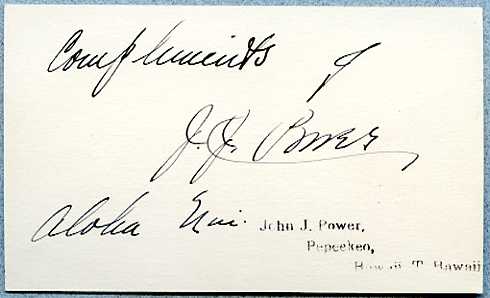 Compliments of
J. J. Power
Aloha Nui.
John J. Power,
Pepeekeo,
Hawaii, T. Hawaii